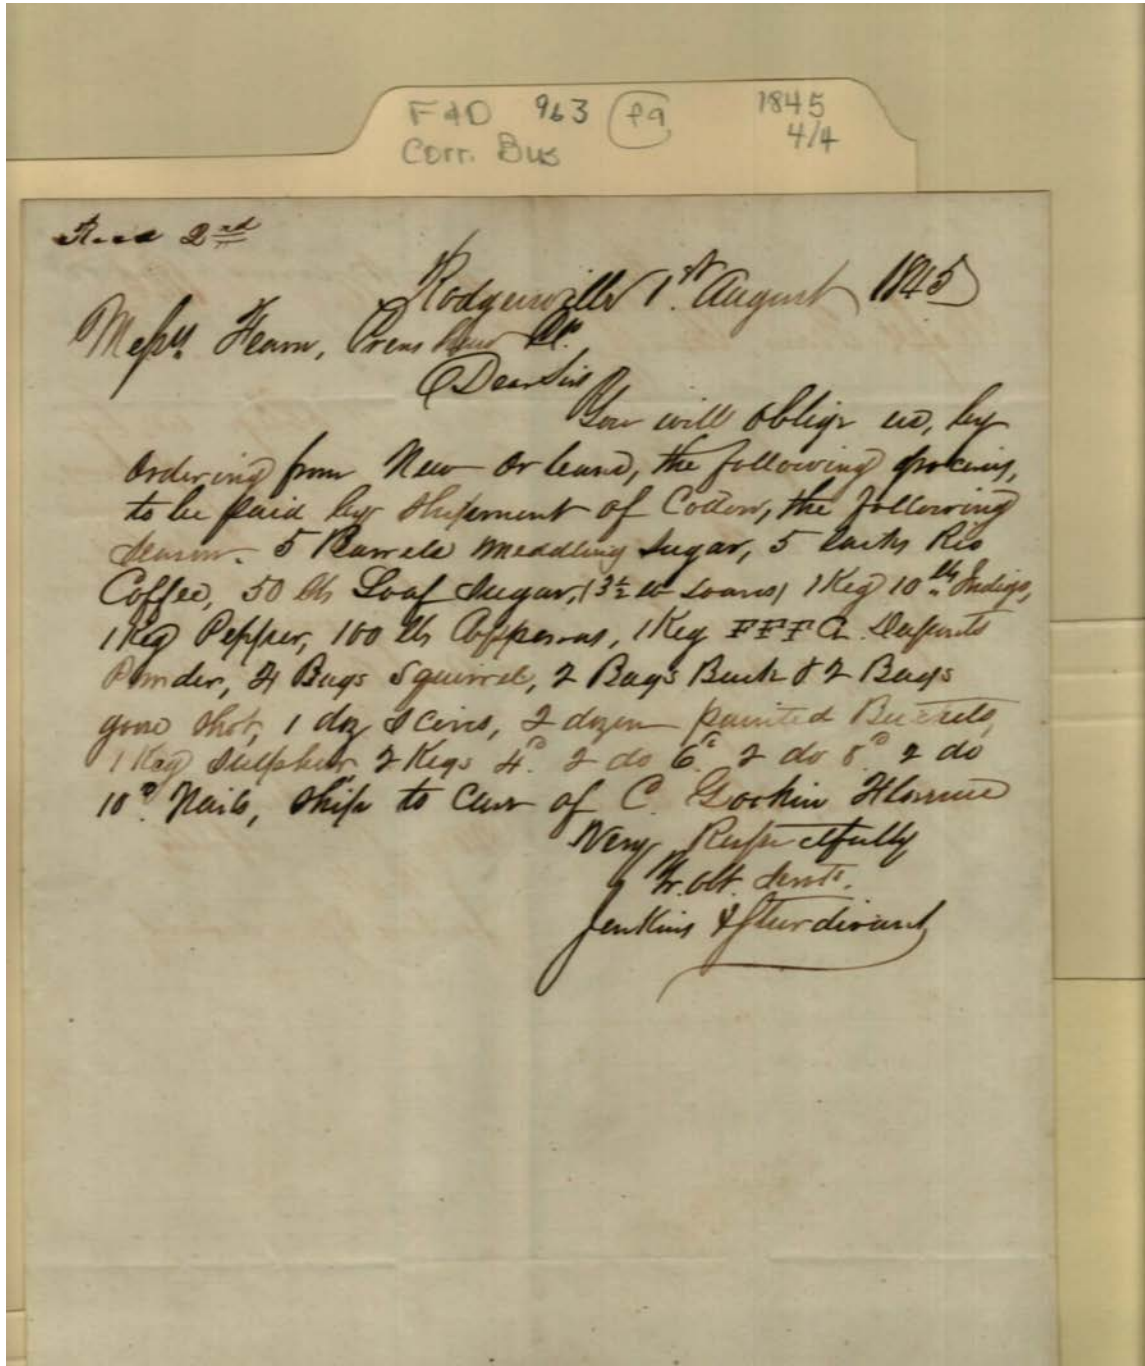 F&D 963 f9 1845
Corr. Bus 4/4
Recd 2nd
Rodgersville 1st August 1845
Messrs Fearn, Crenshaw & Co.
Dear Sirs
You will oblige us, by
Ordering from New Orleans, the following groceries,
to be paid by Shipment of Cotton, the following
Season. 5 Barrels Meddling Sugar, 5 Sacks Rio
Coffee, 50 lbs Loaf Sugar, (3½ lb Loaves) 1 Keg 10 lb Indigo,
1 Keg Pepper, 100 lbs Copperas, 1 Keg FFFG Duponts
Powder, 4 Bags Squirrel, 2 Bags Buck & 2 Bags
goose Shot, 1 doz Scives, 2 dozen painted Buckets,
1 Keg Sulphur 2 Kegs 4d. 2 do 6d 2 do 8d 2 do
10d. Nails, Ship to care of C. Gookin Florence
Very Respectfully
Yr. obt. Servts.
Jenkins & Sturdivant